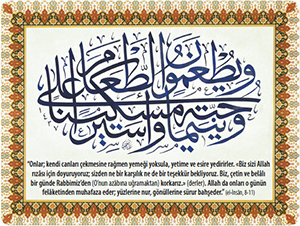 ويطعمون الطعام على حبه مسكينا ويتيما وأسيرا
"Onlar; kendi canları çekmesine rağmen yemeği yoksula, yetime ve esire yedirirler. «Biz sizi Allah
rızâsı için doyuruyoruz; sizden ne bir karşılık ne de bir teşekkür bekliyoruz. Biz, çetin ve belâlı
bir günde Rabbimiz'den (O'nun azâbına uğramaktan) korkarız.» (derler). Allah da onları o günün
felâketinden muhafaza eder; yüzlerine nur, gönüllerine sürur bahşeder." (el-İnsân, 8-11)